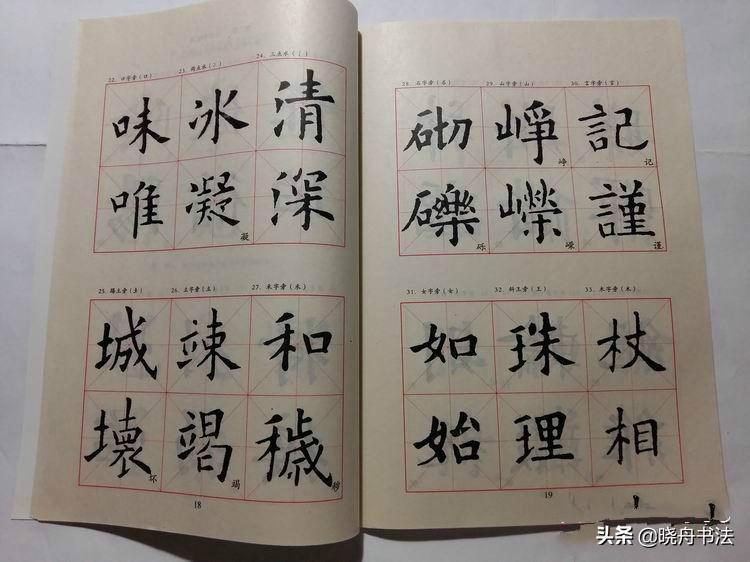 22. 口字旁（口） 23. 两点水（冫） 24. 三点水（氵）
味 冰 清
唯 凝 深
凝
25. 踢土旁（土） 26. 立字旁（立） 27. 禾字旁（禾）
城 竦 和
壞 竭 穢
坏 竭 秽
18
28. 石字旁（石） 29. 山字旁（山） 30. 言字旁（言）
砌 崢 記
峥 记
礫 嶸 謹
砾 嵘 谨
31. 女字旁（女） 32. 斜王旁（王） 33. 木字旁（木）
如 珠 杖
始 理 相
19
头条 @晓舟书法